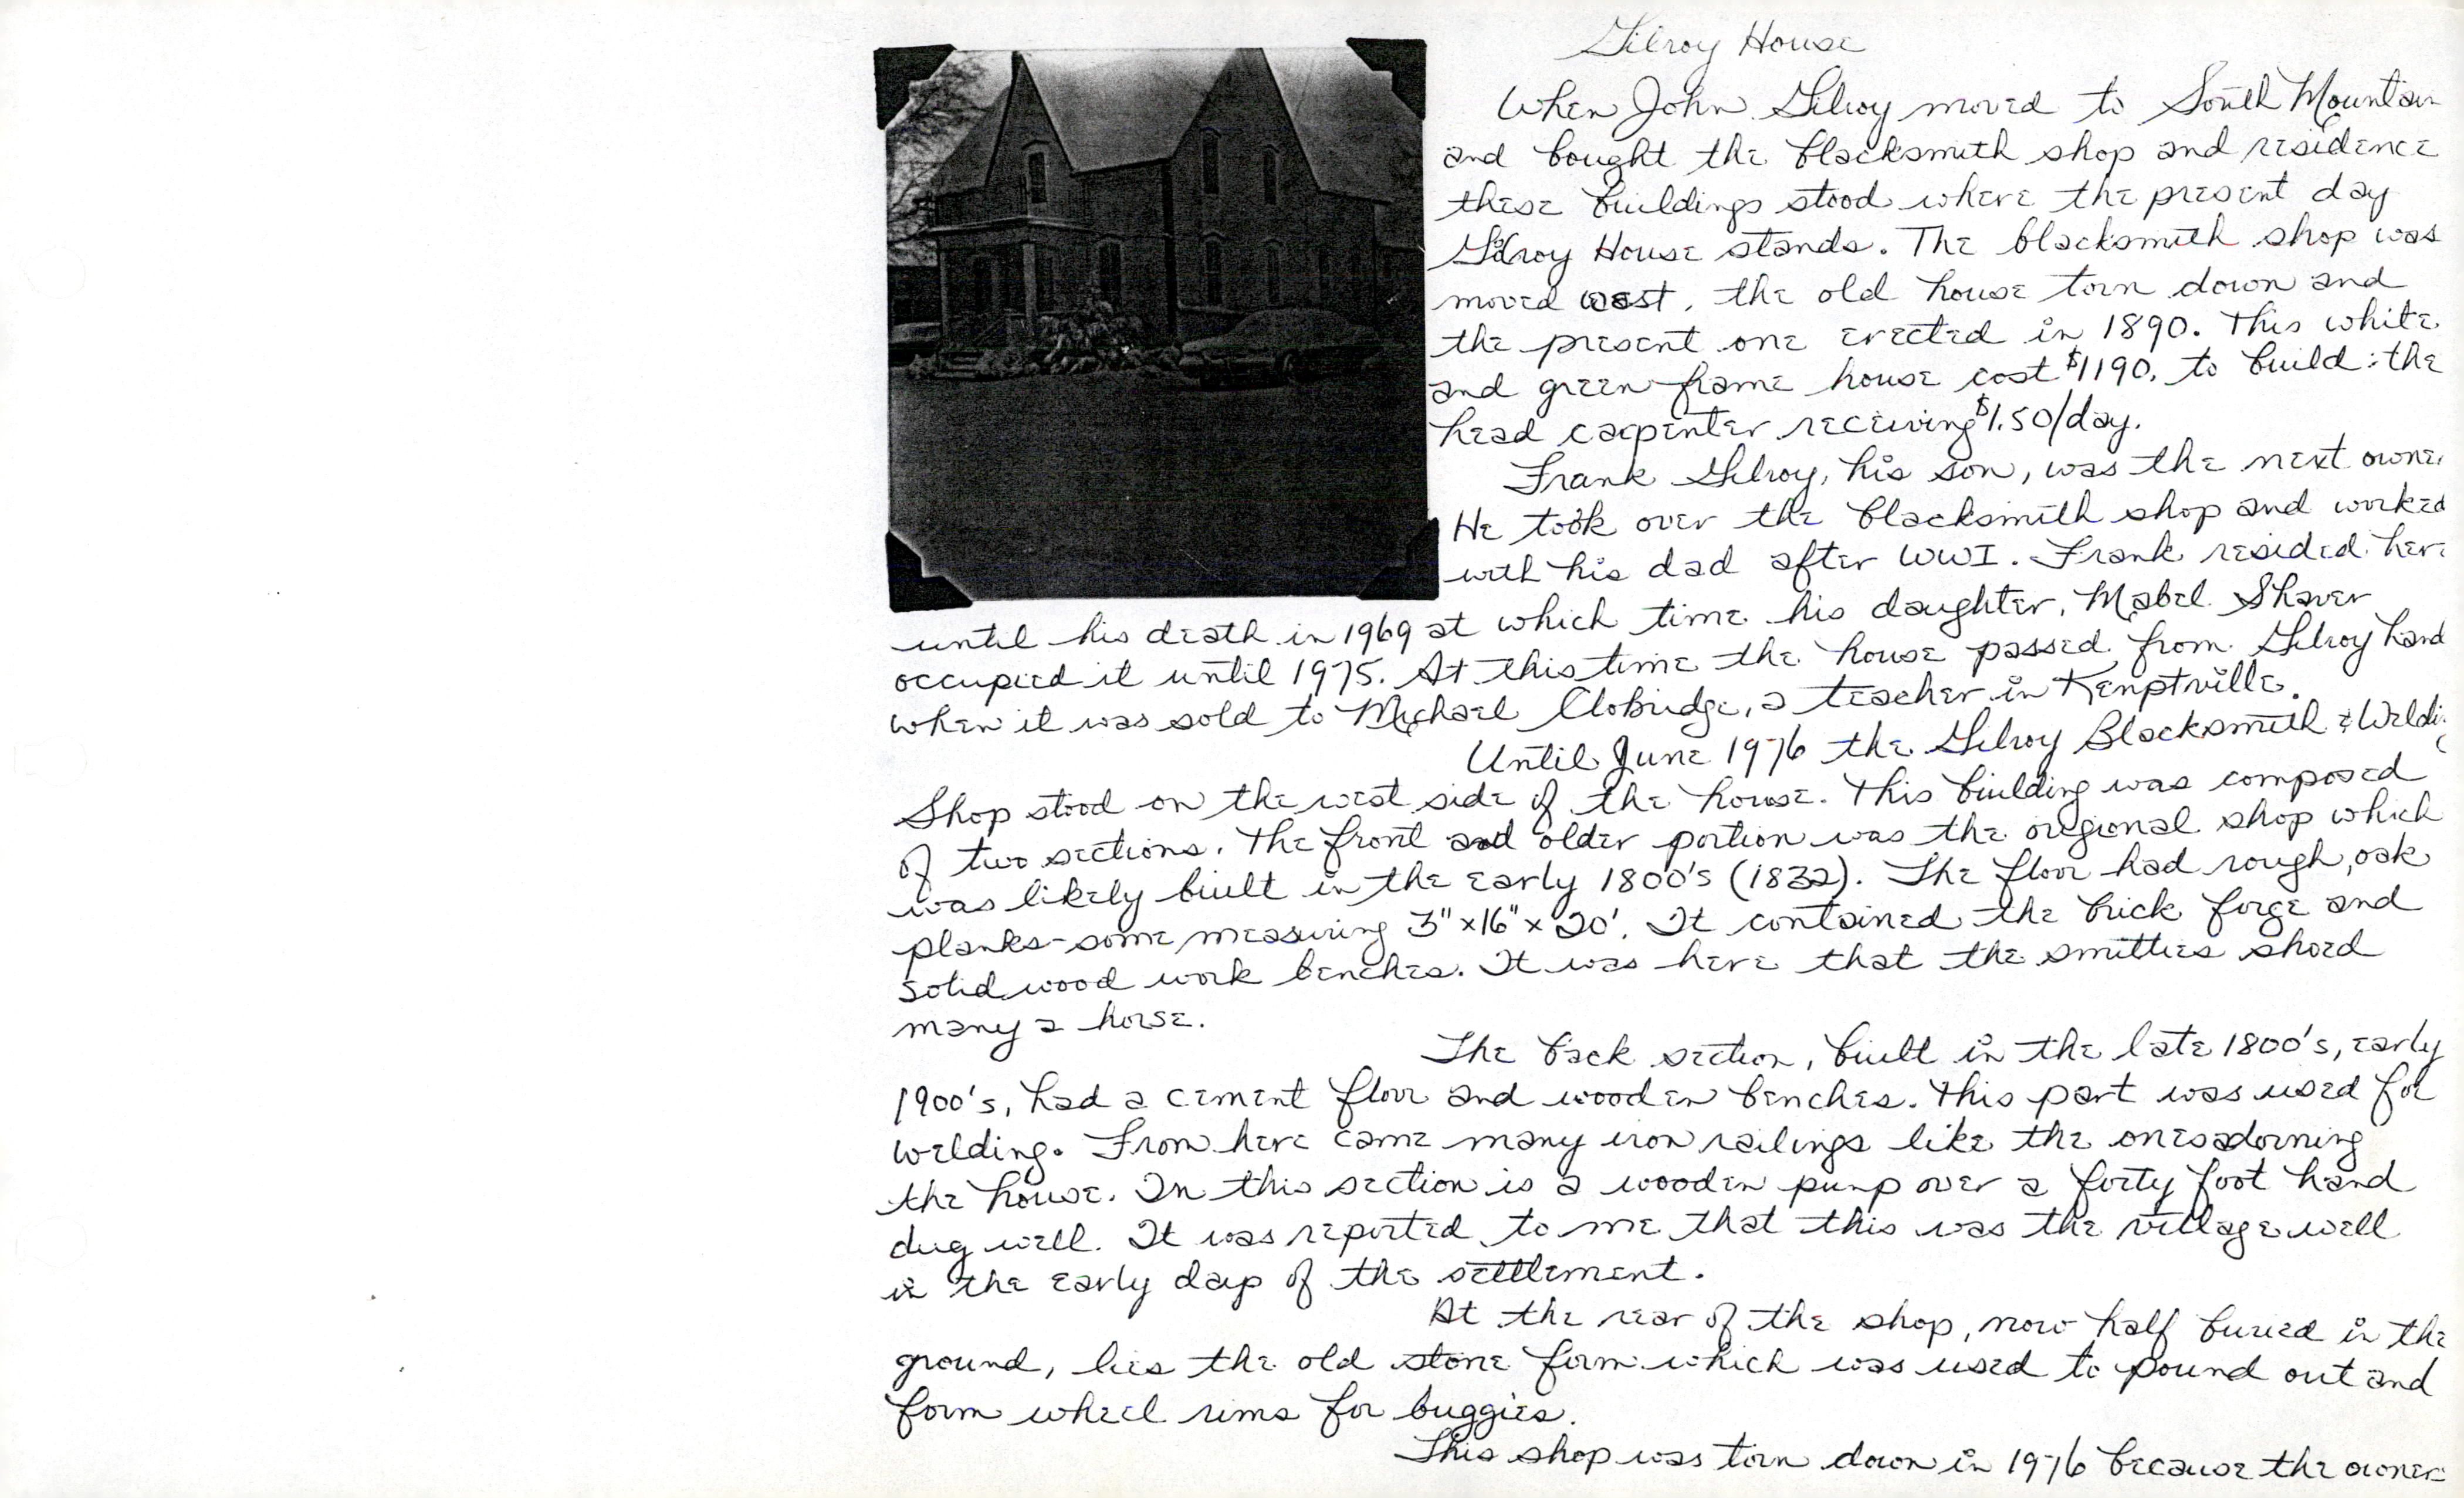 Gilroy House
When John Gilroy moved to South Mountain
and bought the blacksmith shop and residence
these buildings stood where the present day
Gilroy House stands. The blacksmith shop was
moved west, the old house torn down and
the present one erected in 1890. This white
and green frame house cost $1190. to build: the
head carpenter receiving $1.50/day.
Frank Gilroy, his son, was the next owner
He took over the blacksmith shop and worked
with his dad after WWI. Frank resided here
until his death in 1969 at which time his daughter, Mabel Shaver
occupied it until 1975. At this time the house passed from Gilroy hand
when it was sold to Michael Clobridge, a teacher in Kemptville.
Until June 1976 the Gilroy Blacksmith & Weldi
Shop stood on the west side of the house. This building was composed
of two sections. The front and older portion was the origional shop which
was likely built in the early 1800's (1832). The floor had rough, oak
planks - some measuring 3" x 16" x 20'. It contained the brick forge and
solid wood work benches. It was here that the smitties shoed
many a horse.
The back section, built in the late 1800's, early
1900's, had a cement floor and wooden benches. This part was used for
welding. From here came many iron railings like the ones adorning
the house. In this section is a wooden pump over a forty foot hand
dug well. It was reported to me that this was the village well
in the early days of the settlement.
At the rear of the shop, now half buried in the
ground, lies the old stone form which was used to pound out and
form wheel rims for buggies.
This shop was torn down in 1976 because the owner